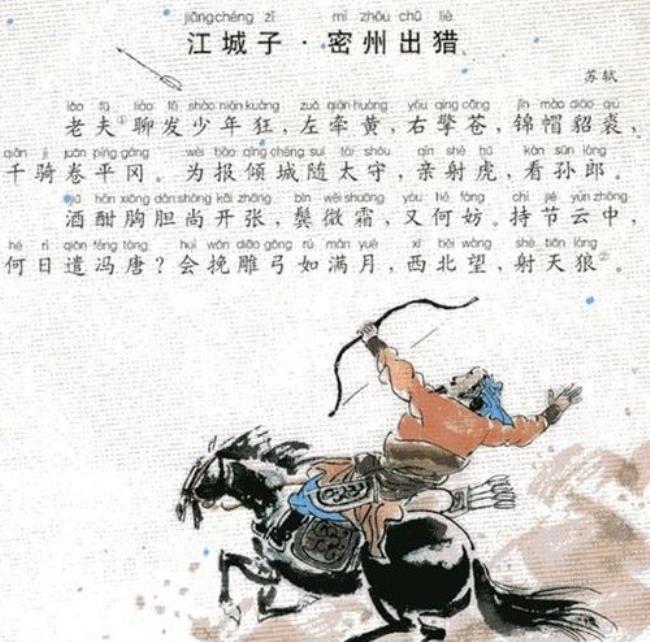 jiāngchéng zǐ mì zhōu chū liè
江城子·密州出猎
苏轼
lǎo fū liáo fā shào nián kuáng zuǒ qiān huáng yòu qíng cāng jǐn mào diāo qiú
老夫①聊发少年狂，左牵黄，右擎苍，锦帽貂裘，
qiān jì juǎn píng gāng wèi bào qīng chéng suí tài shǒu qīn shè hǔ kàn sūn láng
千骑卷平冈。为报倾城随太守，亲射虎，看孙郎。
jiǔ hān xiōng dǎn shàng kāi zhāng bìn wēi shuāng yòu hé fáng chí jié yún zhōng
酒酣胸胆尚开张，鬓微霜，又何妨。持节云中，
hé rì qiǎn féng táng huì wǎn diāo gōng rú mǎn yuè xī běi wàng shè tiān láng
何日遣冯唐？会挽雕弓如满月，西北望，射天狼②。